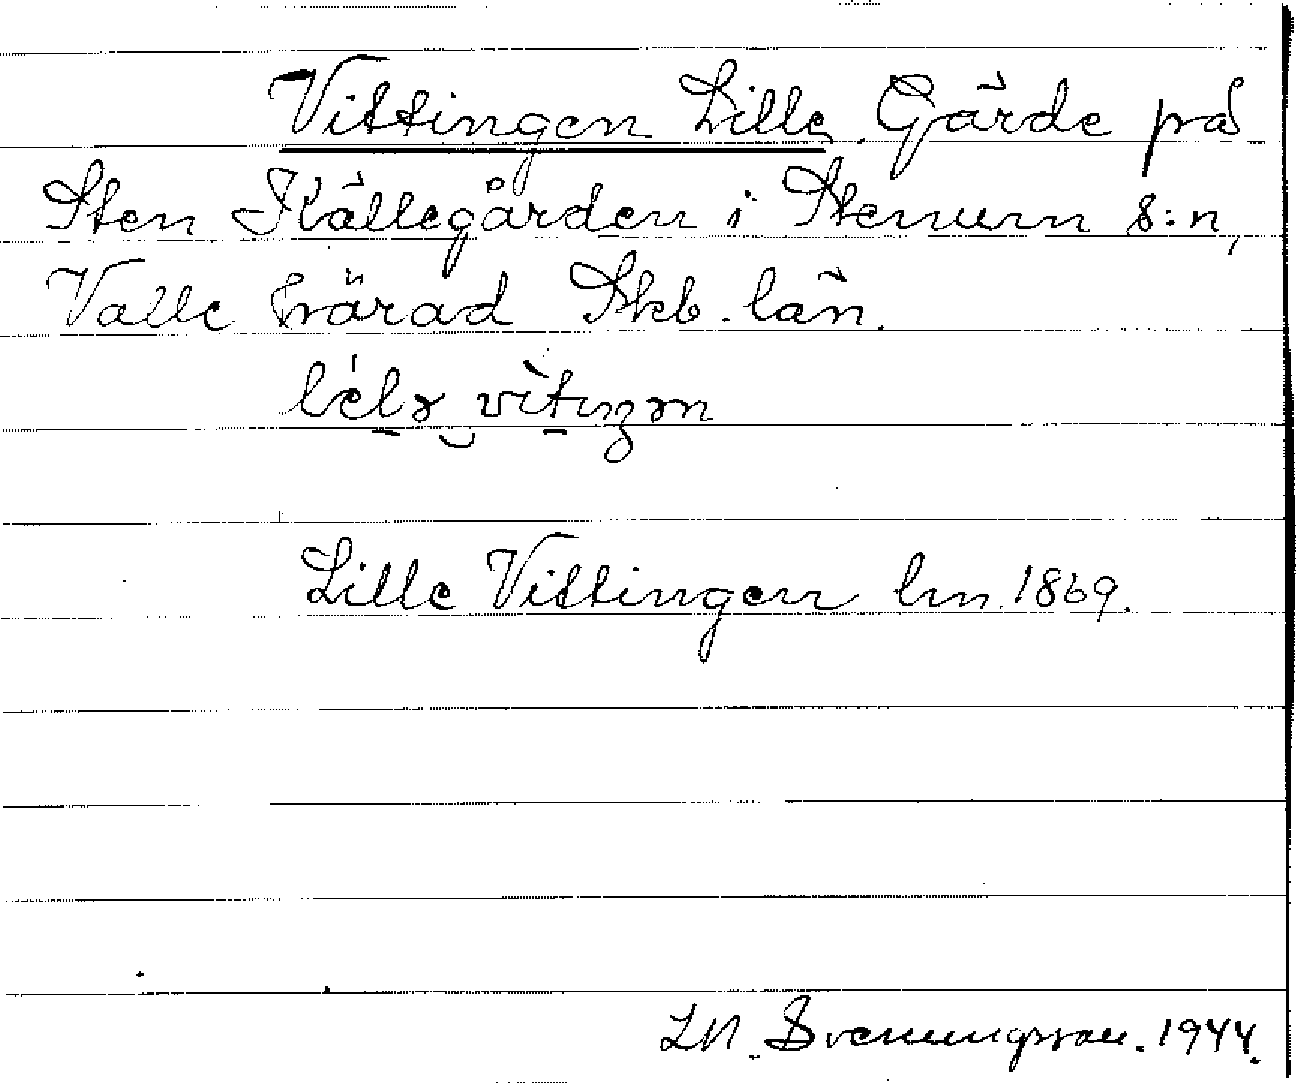 Vittingen Lille Gärde på
Sten Källegården i Stenum s:n,
Valle härad Skb. län.
Lille Vittingen lm 1869.
LM. Svenungsson. 1944.